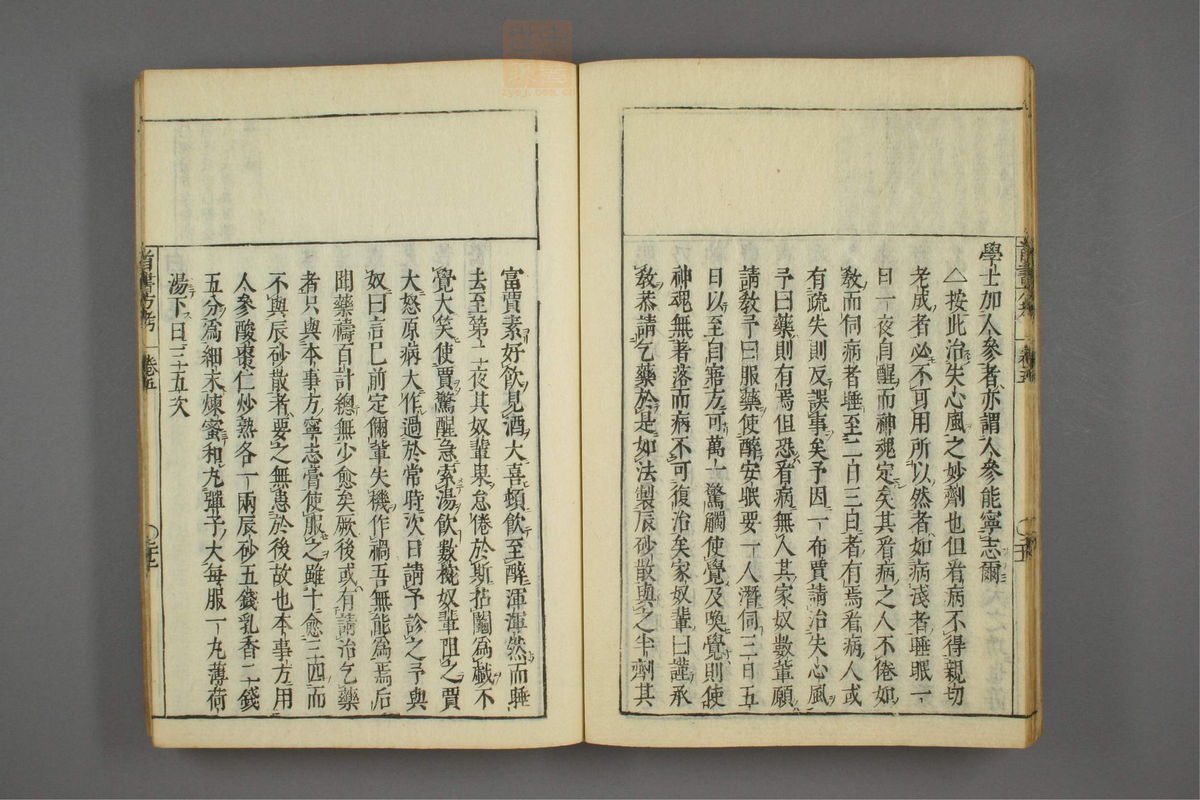 學士加人參者亦謂人參能寧志爾
△按此治失心風之妙劑也但看病不得親切
老成者必不可用所以然者如病淺者睡眠一
日一夜自醒而神魂定矣其看病之人不倦如
教而伺病者睡至二日三日者有焉看病人或
有疏失則反誤事矣予因一布賈請治失心風
予曰藥則有焉但恐看病無人其家奴數輩願
請教予曰服藥使醉安眠要一人潛伺三日五
日以至自寤方可萬一驚觸使覺及喚覺則使
神魂無著落而病不可復治矣家奴輩曰謹承
教恭請乞藥於是如法製辰砂散與之半劑其
富賈素好飲見酒大喜頓飲至醉渾渾然而睡
去至第二夜其奴輩果怠倦於斯拈鬮為戲不
覺大笑使賈驚醒急索湯飲數椀奴輩阻之賈
大怒原病大作過於常時次日請予診之予與
奴曰言已前定倆輩失機作禍吾無能爲焉后
聞藥禱百計總無少愈矣厥後或有請治乞藥
者只與本事方寧志膏使服之雖十愈三四而
不與辰砂散者要之無患於後故也本事方用
人參酸棗仁炒熟各一兩辰砂五錢乳香二錢
五分爲細末煉蜜和丸彈子大每服一丸薄荷
湯下日三五次
首書方考
卷五